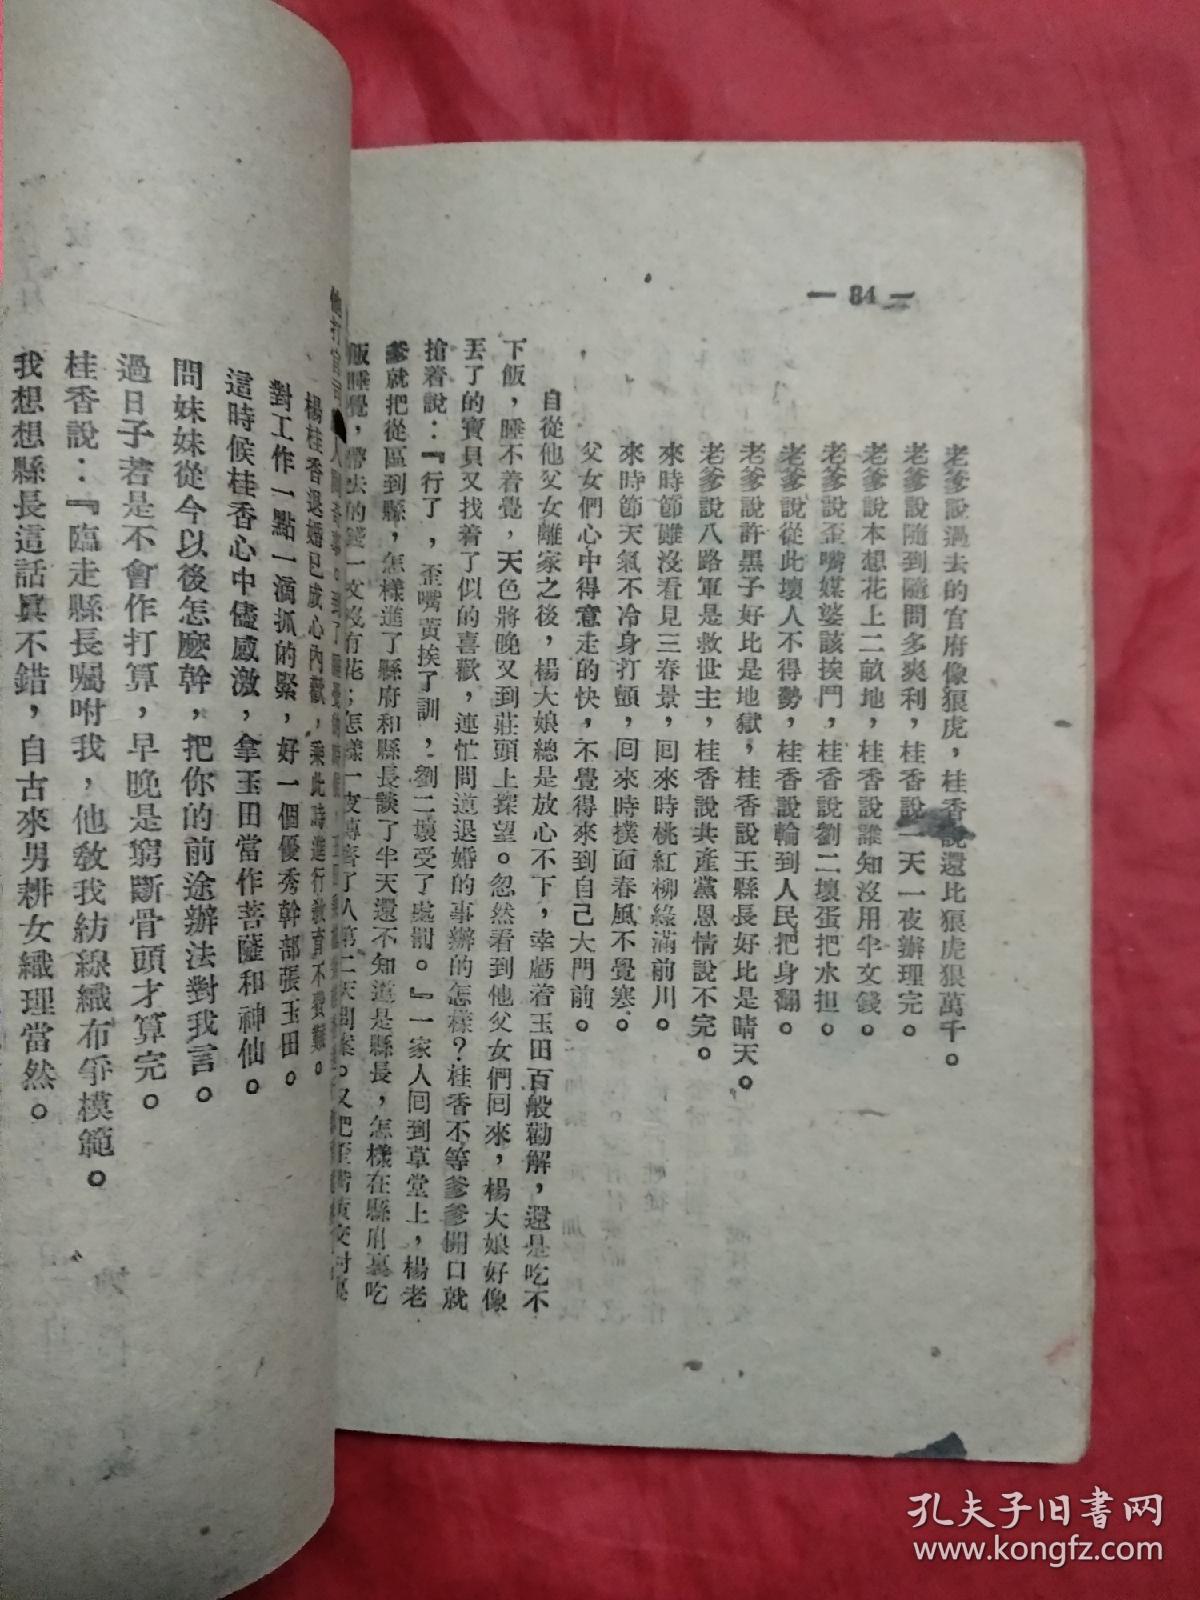 — 84 —
老爹說過去的官府像狼虎，桂香說還比狼虎狠萬千。
老爹說隨到隨問多爽利，桂香說一天一夜辦理完。
老爹說本想花上二畝地，桂香說誰知沒用半文錢。
老爹說歪嘴媒婆該挨鬥，桂香說劉二壞蛋把水担。
老爹說從此壞人不得勢，桂香說輪到人民把身翻。
老爹說許黑子好比是地獄，桂香說王縣長好比是晴天。
老爹說八路軍是救世主，桂香說共產黨恩情說不完。
來時節雖沒看見三春景，回來時桃紅柳綠滿前川。
來時節天氣不冷身打顫，回來時撲面春風不覺寒。
父女們心中得意走的快，不覺得來到自己大門前。
自從他父女離家之後，楊大娘總是放心不下，幸虧着玉田百般勸解，還是吃不
下飯，睡不着覺，天色將晚又到莊頭上探望。忽然看到他父女們回來，楊大娘好像
丟了的寶貝又找着了似的喜歡，連忙問道退婚的事辦的怎樣？桂香不等爹爹開口就
搶着說：『行了，歪嘴黃挨了訓，劉二壞受了處罰。』一家人回到草堂上，楊老
爹就把從區到縣，怎樣進了縣府和縣長談了半天還不知道是縣長，怎樣在縣府裏吃
飯睡覺，帶去的錢一文沒有花；怎樣一夜傳齊了人第二天問案。又把歪嘴黃交村裏
楊桂香退婚已成心內歡，乘此時進行教育不費難。
對工作一點一滴抓的緊，好一個優秀幹部張玉田。
這時候桂香心中儘感激，拿玉田當作菩薩和神仙。
問妹妹從今以後怎麽幹，把你的前途辦法對我言。
過日子若是不會作打算，早晚是窮斷骨頭才算完。
桂香說：『臨走縣長囑咐我，他敎我紡線織布爭模範。
我想想縣長這話眞不錯，自古來男耕女織理當然。
孔夫子旧書网
www.kongfz.com